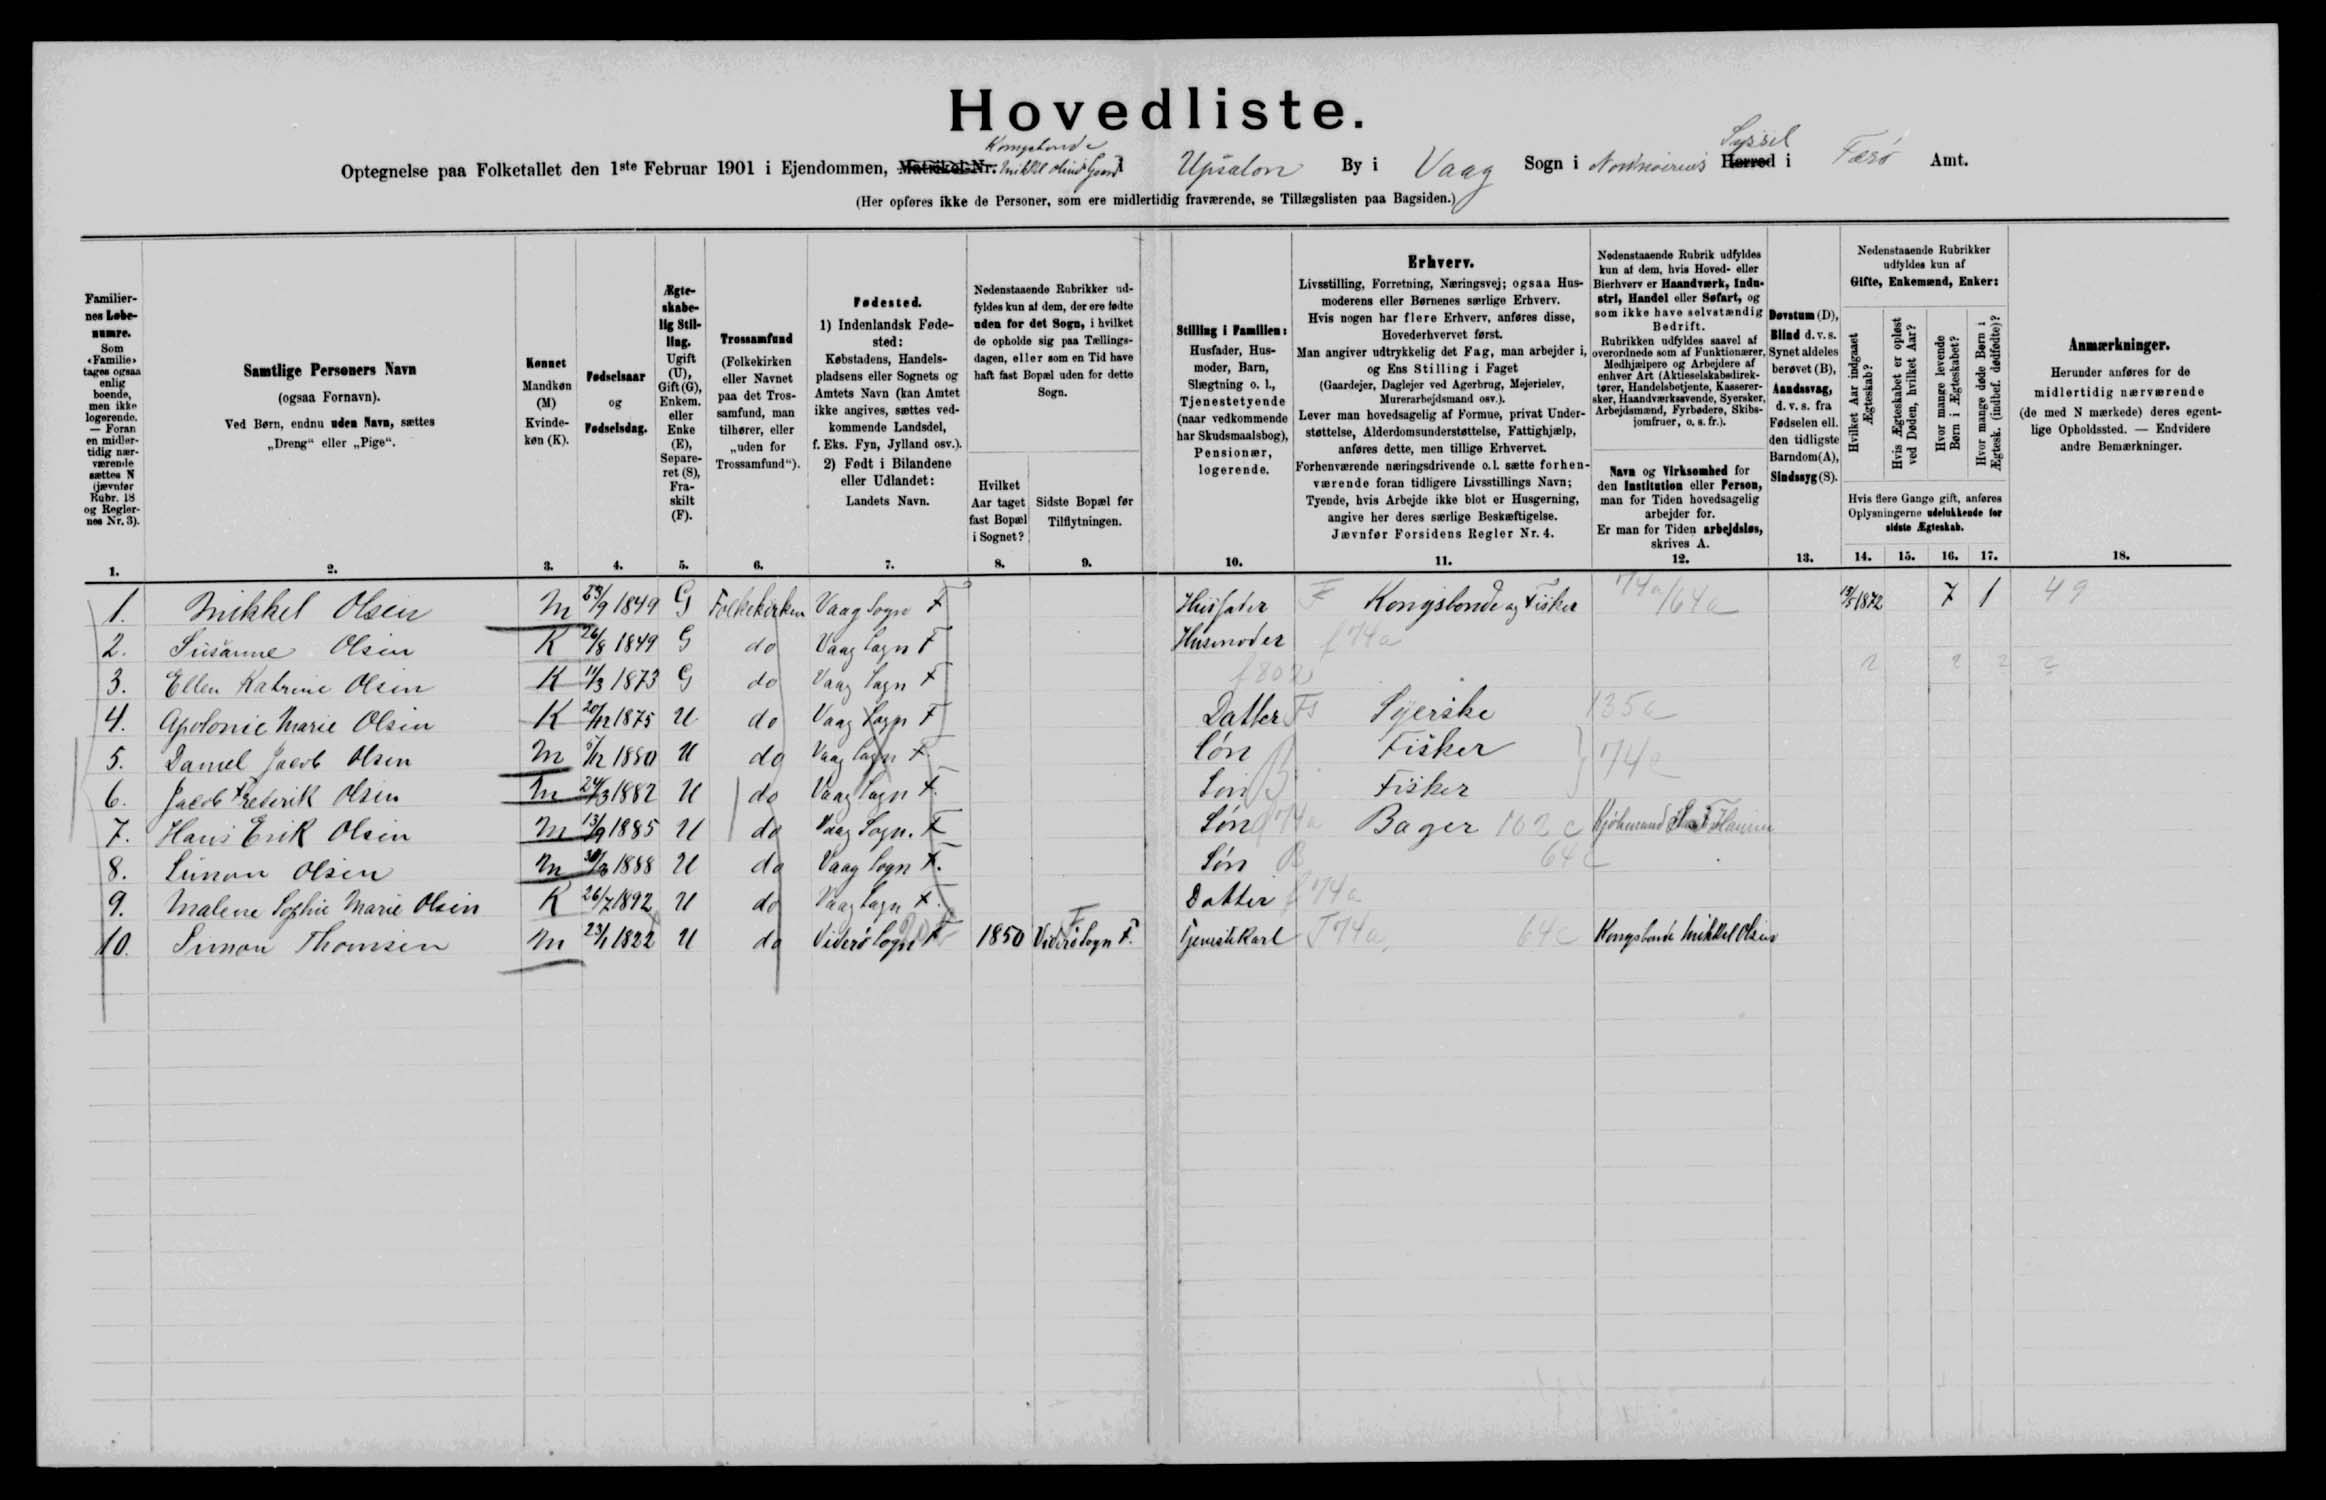 Hovedliste.
Kongsbonde Syssel
Optegnelse paa Folketallet den 1ste Februar 1901 i Ejendommen, Matrikel-Nr. Mikkel Olsens Gaard i Upsalon By i Vaag Sogn i Norderøernes Herred i Færø Amt.
(Her opføres ikke de Personer, som ere midlertidig fraværende, se Tillægslisten paa Bagsiden.)
Familiernes Løbenumre.
Som «Familie» tages ogsaa enlig boende, men ikke logerende. — Foran en midlertidig nærværende sættes N (jævnfør Rubr. 18 og Reglernes Nr. 3).
1.
Samtlige Personers Navn
(ogsaa Fornavn).
Ved Børn, endnu uden Navn, sættes
„Dreng“ eller „Pige“.
2.
Kønnet
Mandkøn (M)
Kvindekøn (K).
3.
Fødselsaar
og
Fødselsdag.
4.
Ægteskabelig Stilling.
Ugift (U), Gift (G), Enkem. eller Enke (E), Separeret (S), Fraskilt (F).
5.
Trossamfund
(Folkekirken eller Navnet paa det Trossamfund, man tilhører, eller „uden for Trossamfund“).
6.
Fødested.
1) Indenlandsk Fødested:
Købstadens, Handelspladsens eller Sognets og Amtets Navn (kan Amtet ikke angives, sættes vedkommende Landsdel, f. Eks. Fyn, Jylland osv.).
2) Født i Bilandene eller Udlandet:
Landets Navn.
7.
Nedenstaaende Rubrikker udfyldes kun af dem, der ere fødte uden for det Sogn, i hvilket de opholde sig paa Tællingsdagen, eller som en Tid have haft fast Bopæl uden for dette Sogn.
Hvilket Aar taget fast Bopæl i Sognet?
8.
Sidste Bopæl før Tilflytningen.
9.
Stilling i Familien:
Husfader, Husmoder, Barn, Slægtning o. l., Tjenestetyende (naar vedkommende har Skudsmaalsbog), Pensionær, logerende.
10.
Erhverv.
Livsstilling, Forretning, Næringsvej; ogsaa Husmoderens eller Børnenes særlige Erhverv.
Hvis nogen har flere Erhverv, anføres disse, Hovederhvervet først.
Man angiver udtrykkelig det Fag, man arbejder i, og Ens Stilling i Faget
(Gaardejer, Daglejer ved Agerbrug, Mejerielev, Murerarbejdsmand osv.).
Lever man hovedsagelig af Formue, privat Understøttelse, Alderdomsunderstøttelse, Fattighjælp, anføres dette, men tillige Erhvervet.
Forhenværende næringsdrivende o. l. sætte forhenværende foran tidligere Livsstillings Navn;
Tyende, hvis Arbejde ikke blot er Husgerning, angive her deres særlige Beskæftigelse.
Jævnfør Forsidens Regler Nr. 4.
11.
Nedenstaaende Rubrik udfyldes kun af dem, hvis Hoved- eller Bierhverv er Haandværk, Industri, Handel eller Søfart, og som ikke have selvstændig Bedrift.
Rubrikken udfyldes saavel af overordnede som af Funktionærer, Medhjælpere og Arbejdere af enhver Art (Aktieselskabsdirektører, Handelsbetjente, Kasserersker, Haandværkssvende, Syersker, Arbejdsmænd, Fyrbødere, Skibsjomfruer, o. s. fr.).
Navn og Virksomhed for den Institution eller Person, man for Tiden hovedsagelig arbejder for.
Er man for Tiden arbejdsløs, skrives A.
12.
Døvstum (D), Blind d. v. s. Synet aldeles berøvet (B), Aandssvag, d. v. s. fra Fødselen ell. den tidligste Barndom (A), Sindssyg (S).
13.
Nedenstaaende Rubrikker udfyldes kun af
Gifte, Enkemænd, Enker:
Hvilket Aar indgaaet Ægteskab?
Hvis Ægteskabet er opløst ved Døden, hvilket Aar?
Hvor mange levende Børn i Ægteskabet?
Hvor mange døde Børn i Ægtesk. (indbef. dødfødte)?
Hvis flere Gange gift, anføres Oplysningerne udelukkende for sidste Ægteskab.
14. 15. 16. 17.
Anmærkninger.
Herunder anføres for de midlertidig nærværende (de med N mærkede) deres egentlige Opholdssted. — Endvidere andre Bemærkninger.
18.
1. Mikkel Olsen M 23/9 1849 G Folkekirken Vaag Sogn F Husfader F Kongsbonde og Fisker 74a/64a 13/5 1872 7 1 49
2. Susanne Olsen K 26/8 1849 G do Vaag Sogn F Husmoder f 74a
3. Ellen Katrine Olsen K 11/3 1873 G do Vaag Sogn F 2 2 2 2
4. Apolonie Marie Olsen K 20/12 1875 U do Vaag Sogn F Datter Fs Syerske 135a
5. Daniel Jacob Olsen M 5/12 1880 U do Vaag Sogn F Søn Fisker 74c
6. Jacob Frederik Olsen M 24/3 1882 U do Vaag Sogn F. Søn B Fisker
7. Hans Erik Olsen M 13/9 1885 U do Vaag Sogn. F Søn 74a Bager 102 c Kjøbmand
8. Simon Olsen M 30/3 1888 U do Vaag Sogn F. Søn B 64c
9. Malene Sophie Marie Olsen K 26/7 1892 U do Vaag Sogn F. Datter f 74a
10. Simon Thomsen M 23/1 1822 U do Viderø Sogn F 1850 Viderø Sogn F. Tjenestekarl T 74a, 64c Kongsbonde Mikkel Olsen